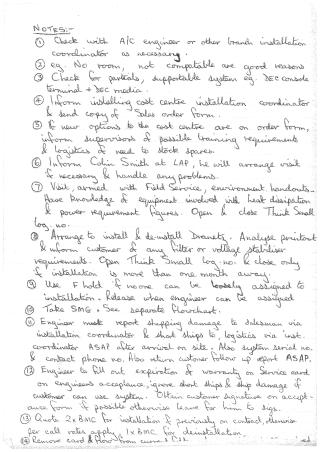 NOTES:-
① Check with A/C engineer or other branch installation
coordinator as necessary.
② eg. No room, not compatable are good reasons
③ Check for partials, supportable system eg. DEC console
terminal + DEC media.
④ Inform installing cost centre installation coordinator
& send copy of Sales order form.
⑤ If new options to the cost centre are on order form,
inform supervisors of possible training requirements
& logistics of need to stock spares
⑥ Inform Colin Smith at LAP, he will arrange visit
if necessary & handle any problems.
⑦ Visit, armed with Field Service, environment handouts-
Have knowledge of equipment involved with heat dissipation
& power requirement figures. Open & close Think Small
log no.
⑧ Arrange to install & de-install Dranetz. Analyse printout
& inform customer of any filter or voltage stabiliser
requirements. Open Think Small log no. & close only
if installation is more than one month away.
⑨ Use F hold if no one can be loosely assigned to
installation. Release when engineer can be assigned
⑩ Take SMG. See separate flowchart.
⑪ Engineer must report shipping damage to salesman via
installation coordinator & short ships to logistics via inst.
coordinator ASAP after arrival on site. Also system serial no.
& contact phone no. Also return customer follow up report ASAP.
⑫ Engineer to fill out expiration of warranty on Service card
on engineers acceptance, ignore short ships & ship damage if
customer can use system. Obtain customer signature on accept-
ance form if possible otherwise leave for him to sign.
⑬ Quote 2xBMC for installation if previously on contract, otherwise
per call rates apply. 1xBMC for deinstallation.
⑭ Remove card & flow from